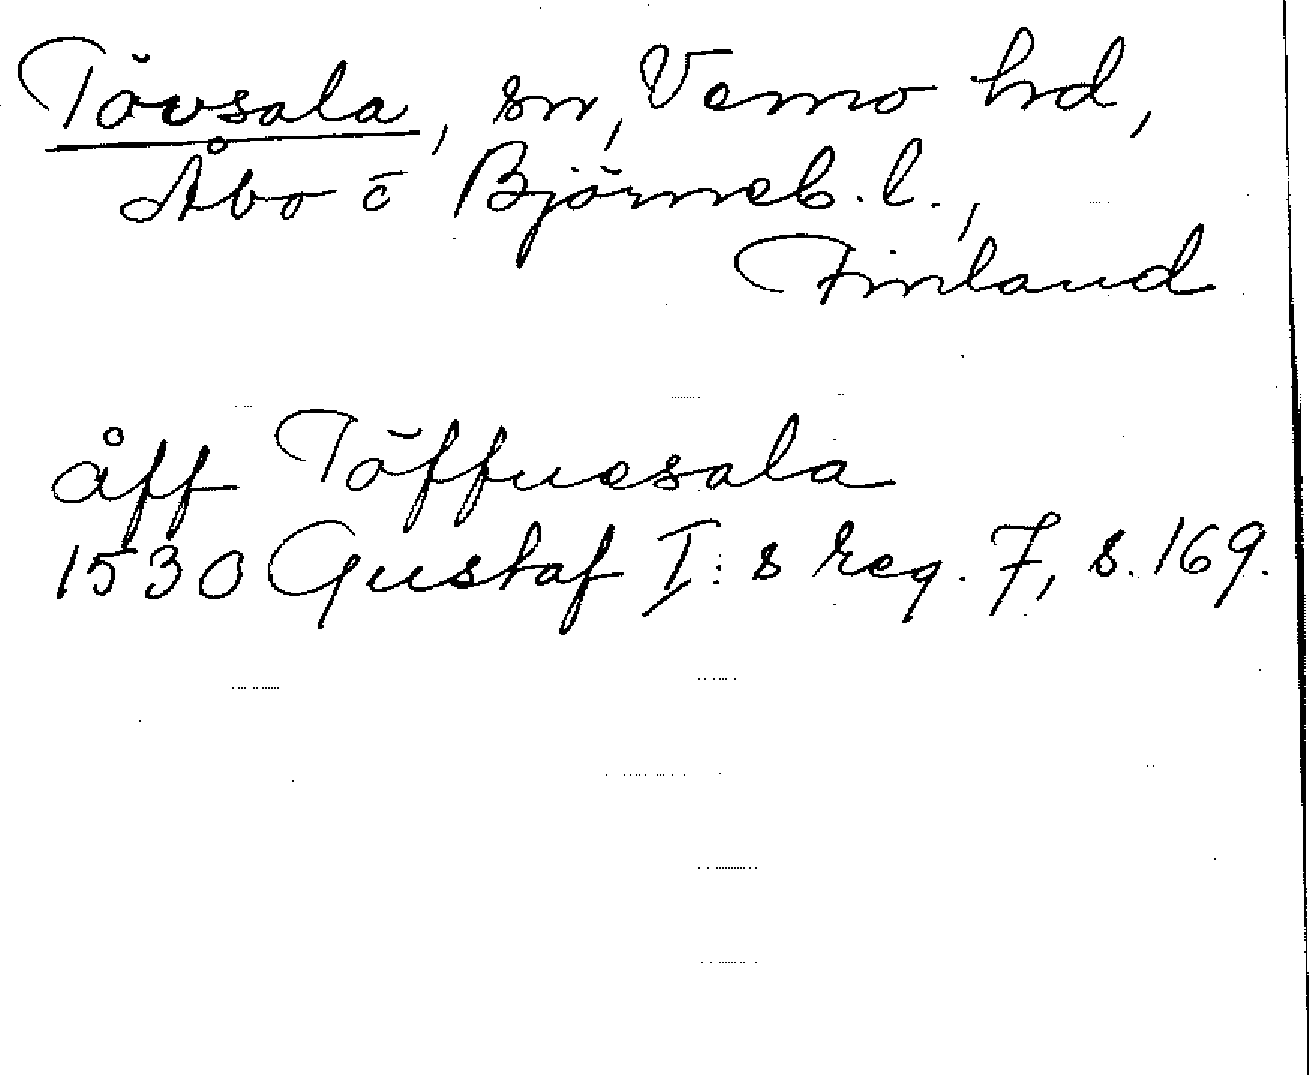 Tövsala, sn, Vemo hd,
Åbo o Björneb. l.,
Finland
åff Töffuesala
1530 Gustaf I:s reg. 7, s. 169.